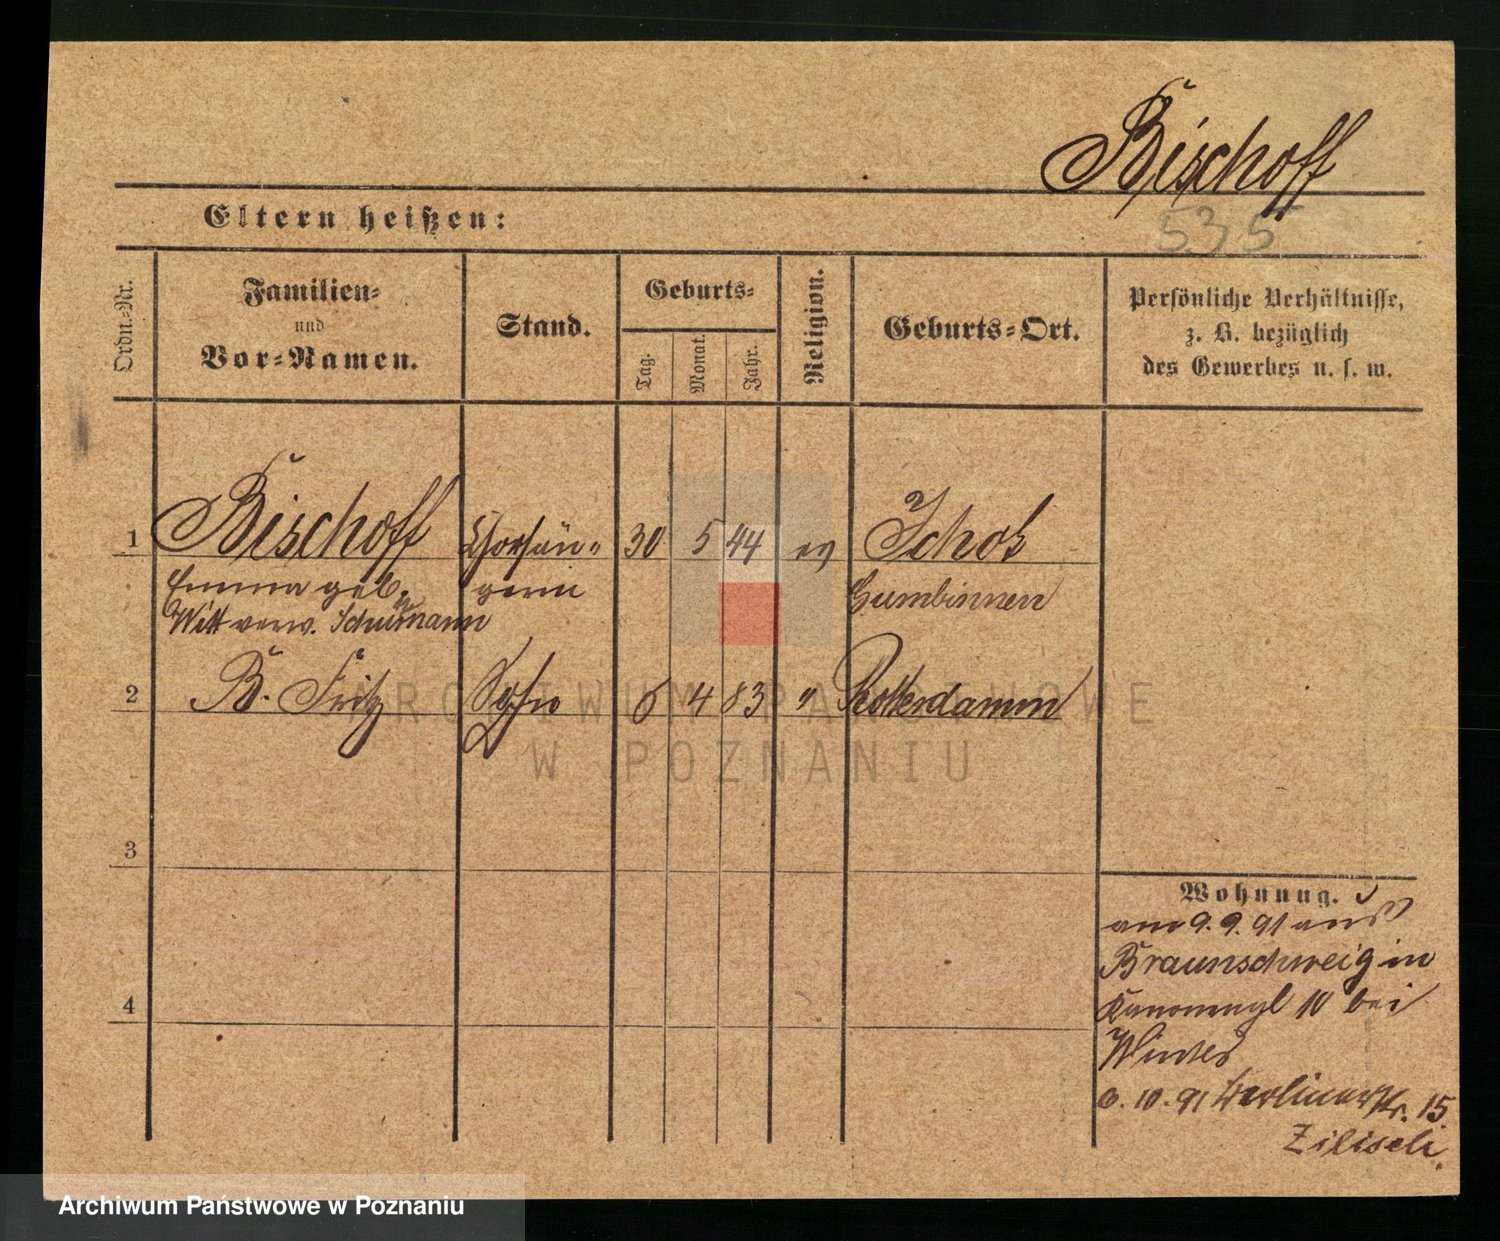 Bischoff
535
Eltern heißen:
Ordn.-Nr.
Familien-
und
Vor-Namen.
Stand.
Geburts-
Tag.
Monat.
Jahr.
Religion.
Geburts-Ort.
Persönliche Verhältnisse,
z. B. bezüglich
des Gewerbes u. s. w.
1 Bischoff Chorsän- 30 5 44 ev
Emma geb. gerin Gumbinnen
Witt verw. Schumann
2 B. Fritz Sohn 6 4 83 " Rotterdamm
3
4
Wohnung.
am 9. 9. 91 aus
Braunschweig in
Kanonenpl 10 bei
Winter
6. 10. 91 Berlinerstr. 15
ARCHIWUM PAŃSTWOWE
W POZNANIU
Archiwum Państwowe w Poznaniu